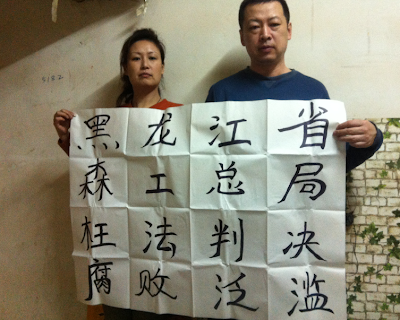 黑龙江省
森工总局
枉法判决
腐败泛滥